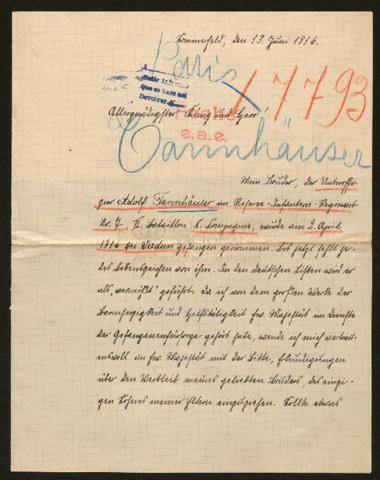 Sommerfeld, den 13. Juni 1916.
Paris
17793
Allergnädigster König und Herr!
e.a.e.
Tannhäuser
Mein Bruder, der Unteroffi-
zier Adolf Tannhäuser im Reserve-Infanterie-Regiment
Nr. 7, II. Bataillon, 8. Compagnie, wurde am 2. April
1916 bei Verdun gefangen genommen. Bis jetzt fehlt je-
des Lebenszeichen von ihm. In den deutschen Listen wird er
als „vermißt“ geführt. Da ich von dem großen Werke der
Barmherzigkeit und Hilfstätigkeit Ew. Majestät im Dienste
der Gefangenenfürsorge gehört habe, wende ich mich vertrauens-
voll an Ew. Majestät mit der Bitte, Erkundigungen
über den Verbleib meines geliebten Bruders, des einzi-
gen Sohnes meiner Eltern einzuziehen. Sollte etwas